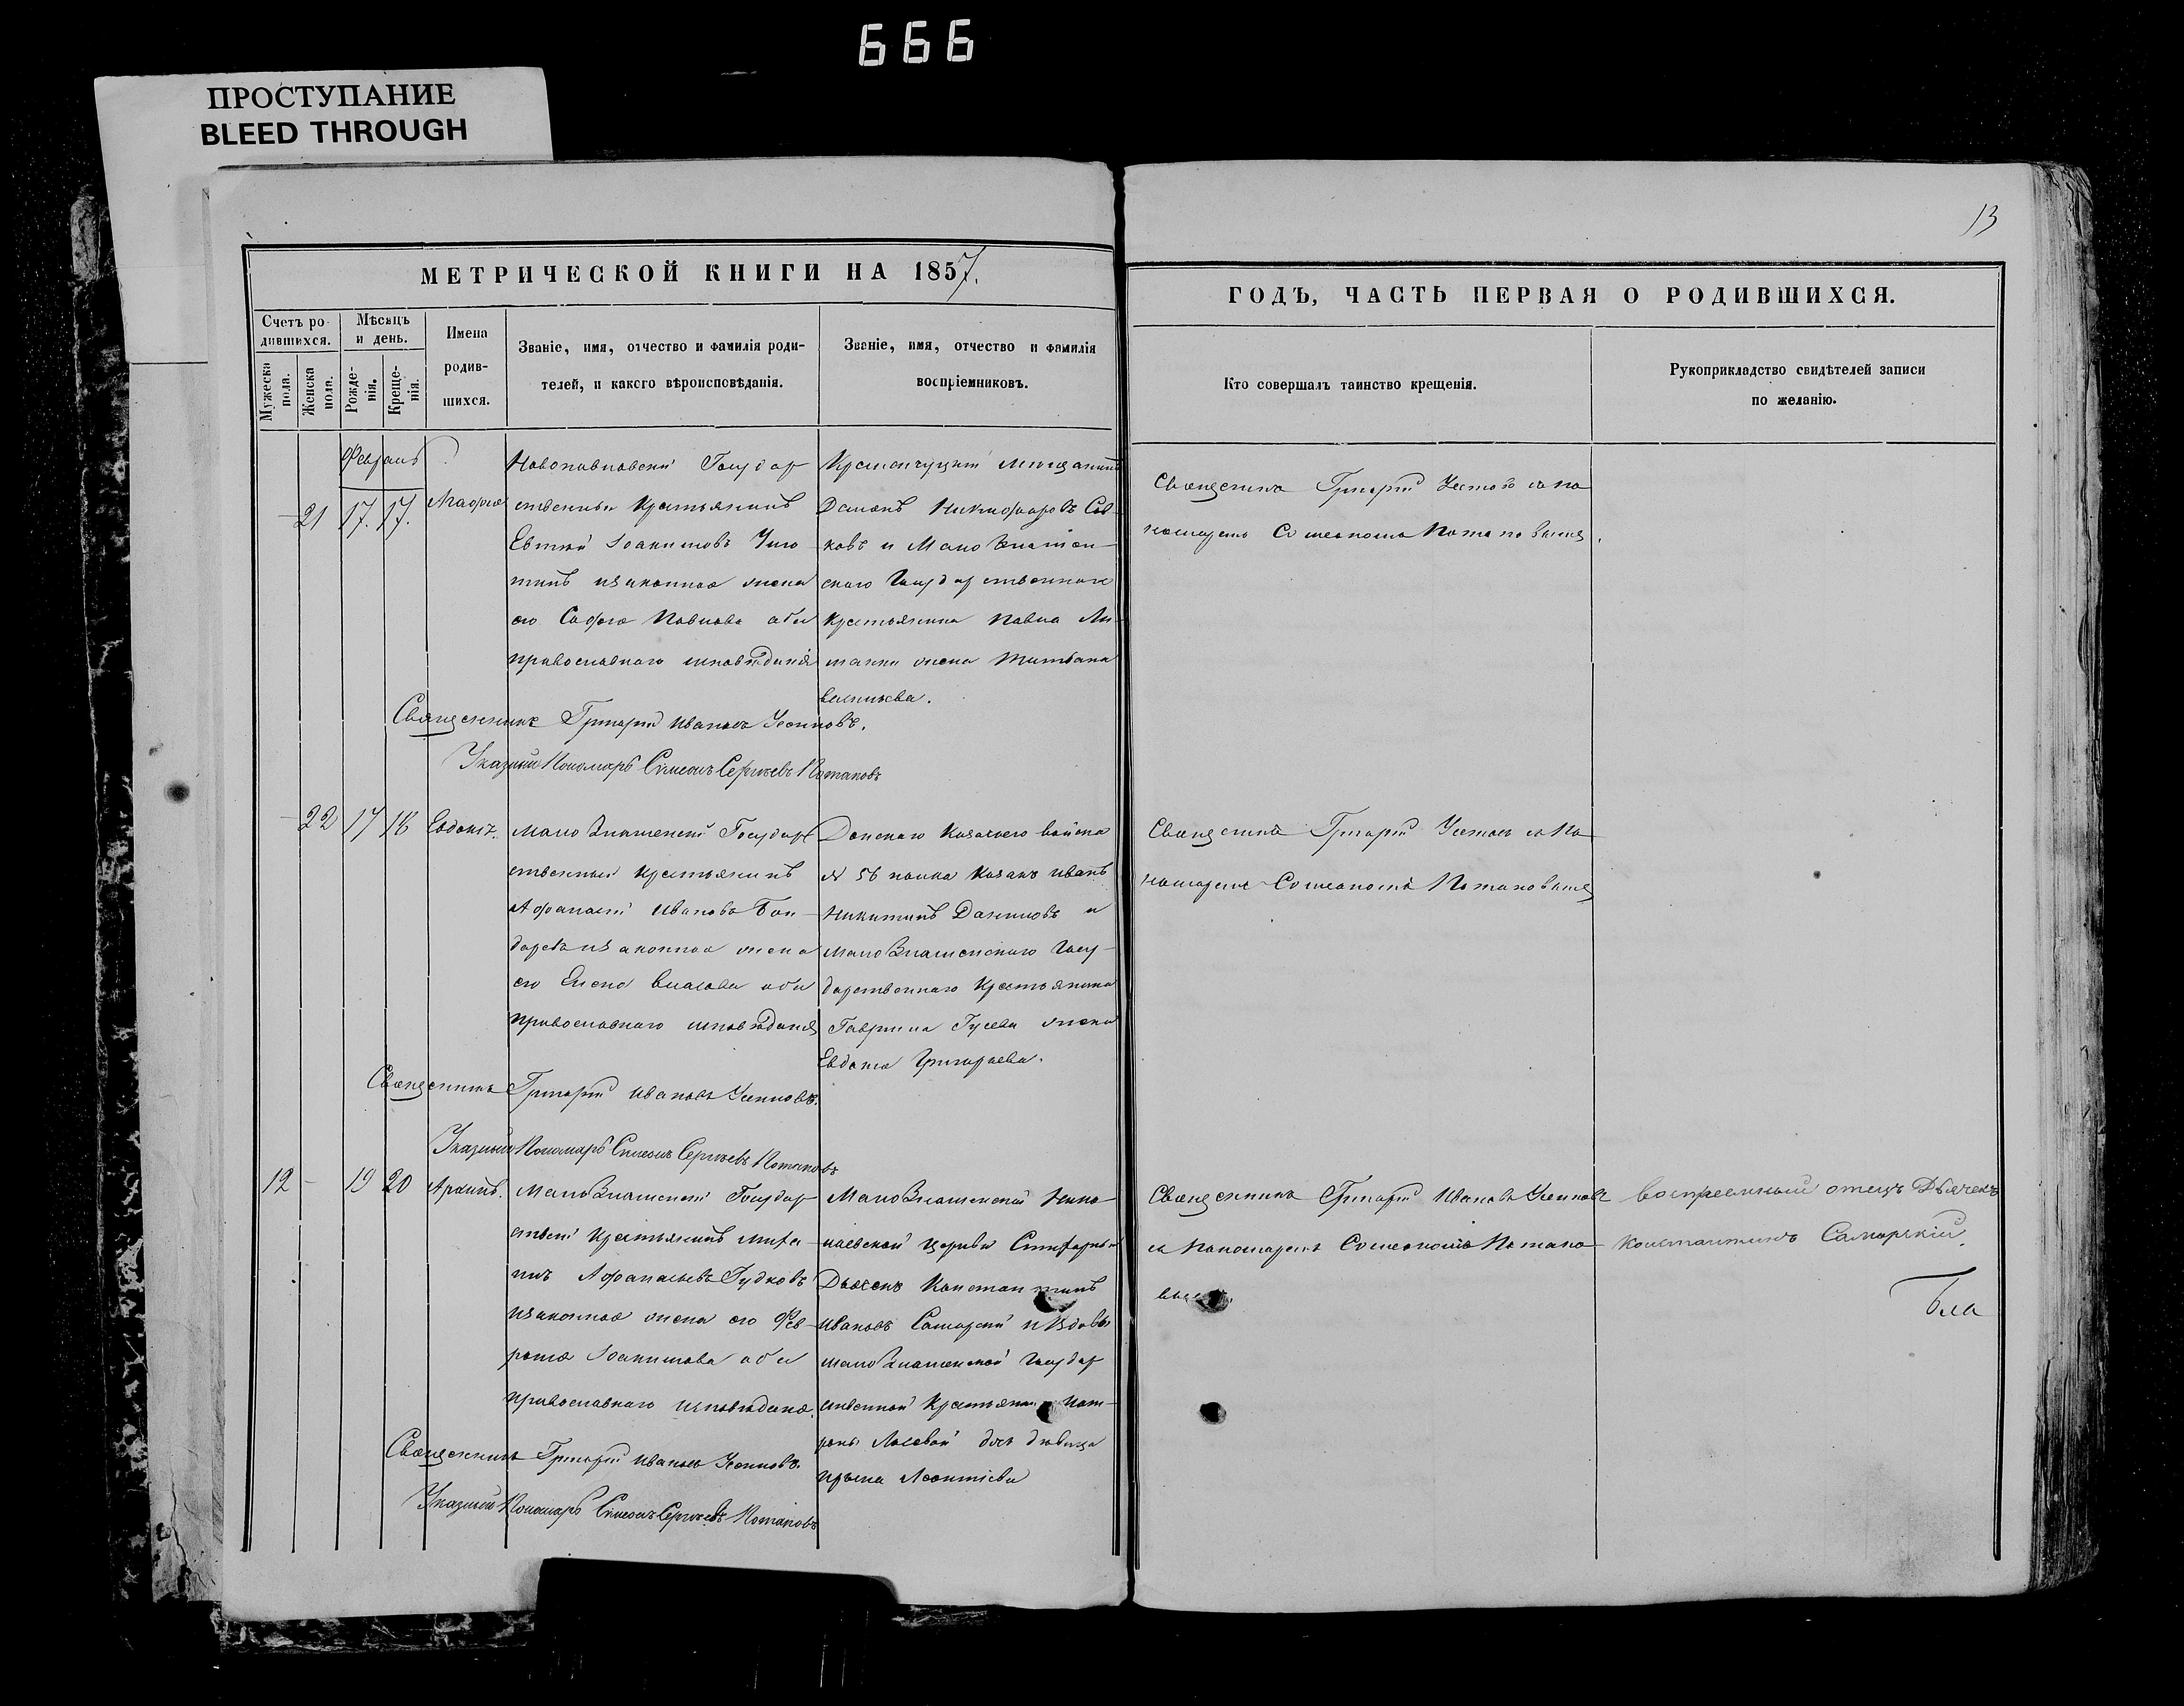 666
ПРОСТУПАНИЕ
BLEED THROUGH
13
МЕТРИЧЕСКОЙ КНИГИ НА 1857.
Счетъ ро-
дившихся.
Мужеска
пола.
Женска
пола.
Мѣсяцъ
и день.
Рожде-
нія.
Креще-
нія.
Имена
родив-
шихся.
Званіе, имя, отчество и фамилія роди-
телей, и какого вѣроисповѣданія.
Званіе, имя, отчество и фамилія
воспріемниковъ.
ГОДЪ, ЧАСТЬ ПЕРВАЯ О РОДИВШИХСЯ.
Кто совершалъ таинство крещенія.
Рукоприкладство свидѣтелей записи
по желанію.
Февраль
21 17. 17.
Новопавловскій Государ
ственный Крестьянинъ
Іоакимовъ
законная жена
его Павлова оби
православнаго исповѣданія
мѣщанинъ
Никифоровъ
Государственнаго
Крестьянина Павла
жена
Васильева.
Священникъ Григорій съ по
номаремъ Симеономъ Потаповымъ.
Священникъ Григорій Ивановъ
Указный Пономарь Симеонъ Сергѣевъ Потаповъ
22 17 18
Мало Знаменскій Государ
ственный Крестьянинъ
Афанасій Ивановъ Бон-
даревъ законная жена
его Елена Власова оби
православнаго исповѣданія
Донскаго Казачьяго войска
№ 56 полка Казакъ Иванъ
Никитинъ Даниловъ и
Мало Знаменскаго Госу-
дарственнаго Крестьянина
Гаврила Гусева жена
Евдокія Григорьева.
Священникъ Григорій съ По
номаремъ Симеономъ Потаповымъ
Священникъ Григорій Ивановъ
Указный Пономарь Симеонъ Сергѣевъ Потаповъ
12 - 19 20 Архипъ.
Мало Знаменскій Государ
Крестьянинъ Миха
илъ Афанасьевъ Гудковъ
законная жена его Фев
ронія Іоакимова оби
православнаго исповѣданія.
Мало Знаменской Нико
лаевской Церкви
Дьячекъ Константинъ
Ивановъ Самарскій и Вдовы
мало Знаменской Государ
ственной Крестьянки Мат-
роны дочь дѣвица
Леонтіева
Священникъ Григорій Ивановъ
съ Пономаремъ Симеономъ Потапо
Воспріемный отецъ Дьячекъ
Константинъ Самарскій.
Бла
Священникъ Григорій Ивановъ
Указный Пономарь Симеонъ Сергѣевъ Потаповъ